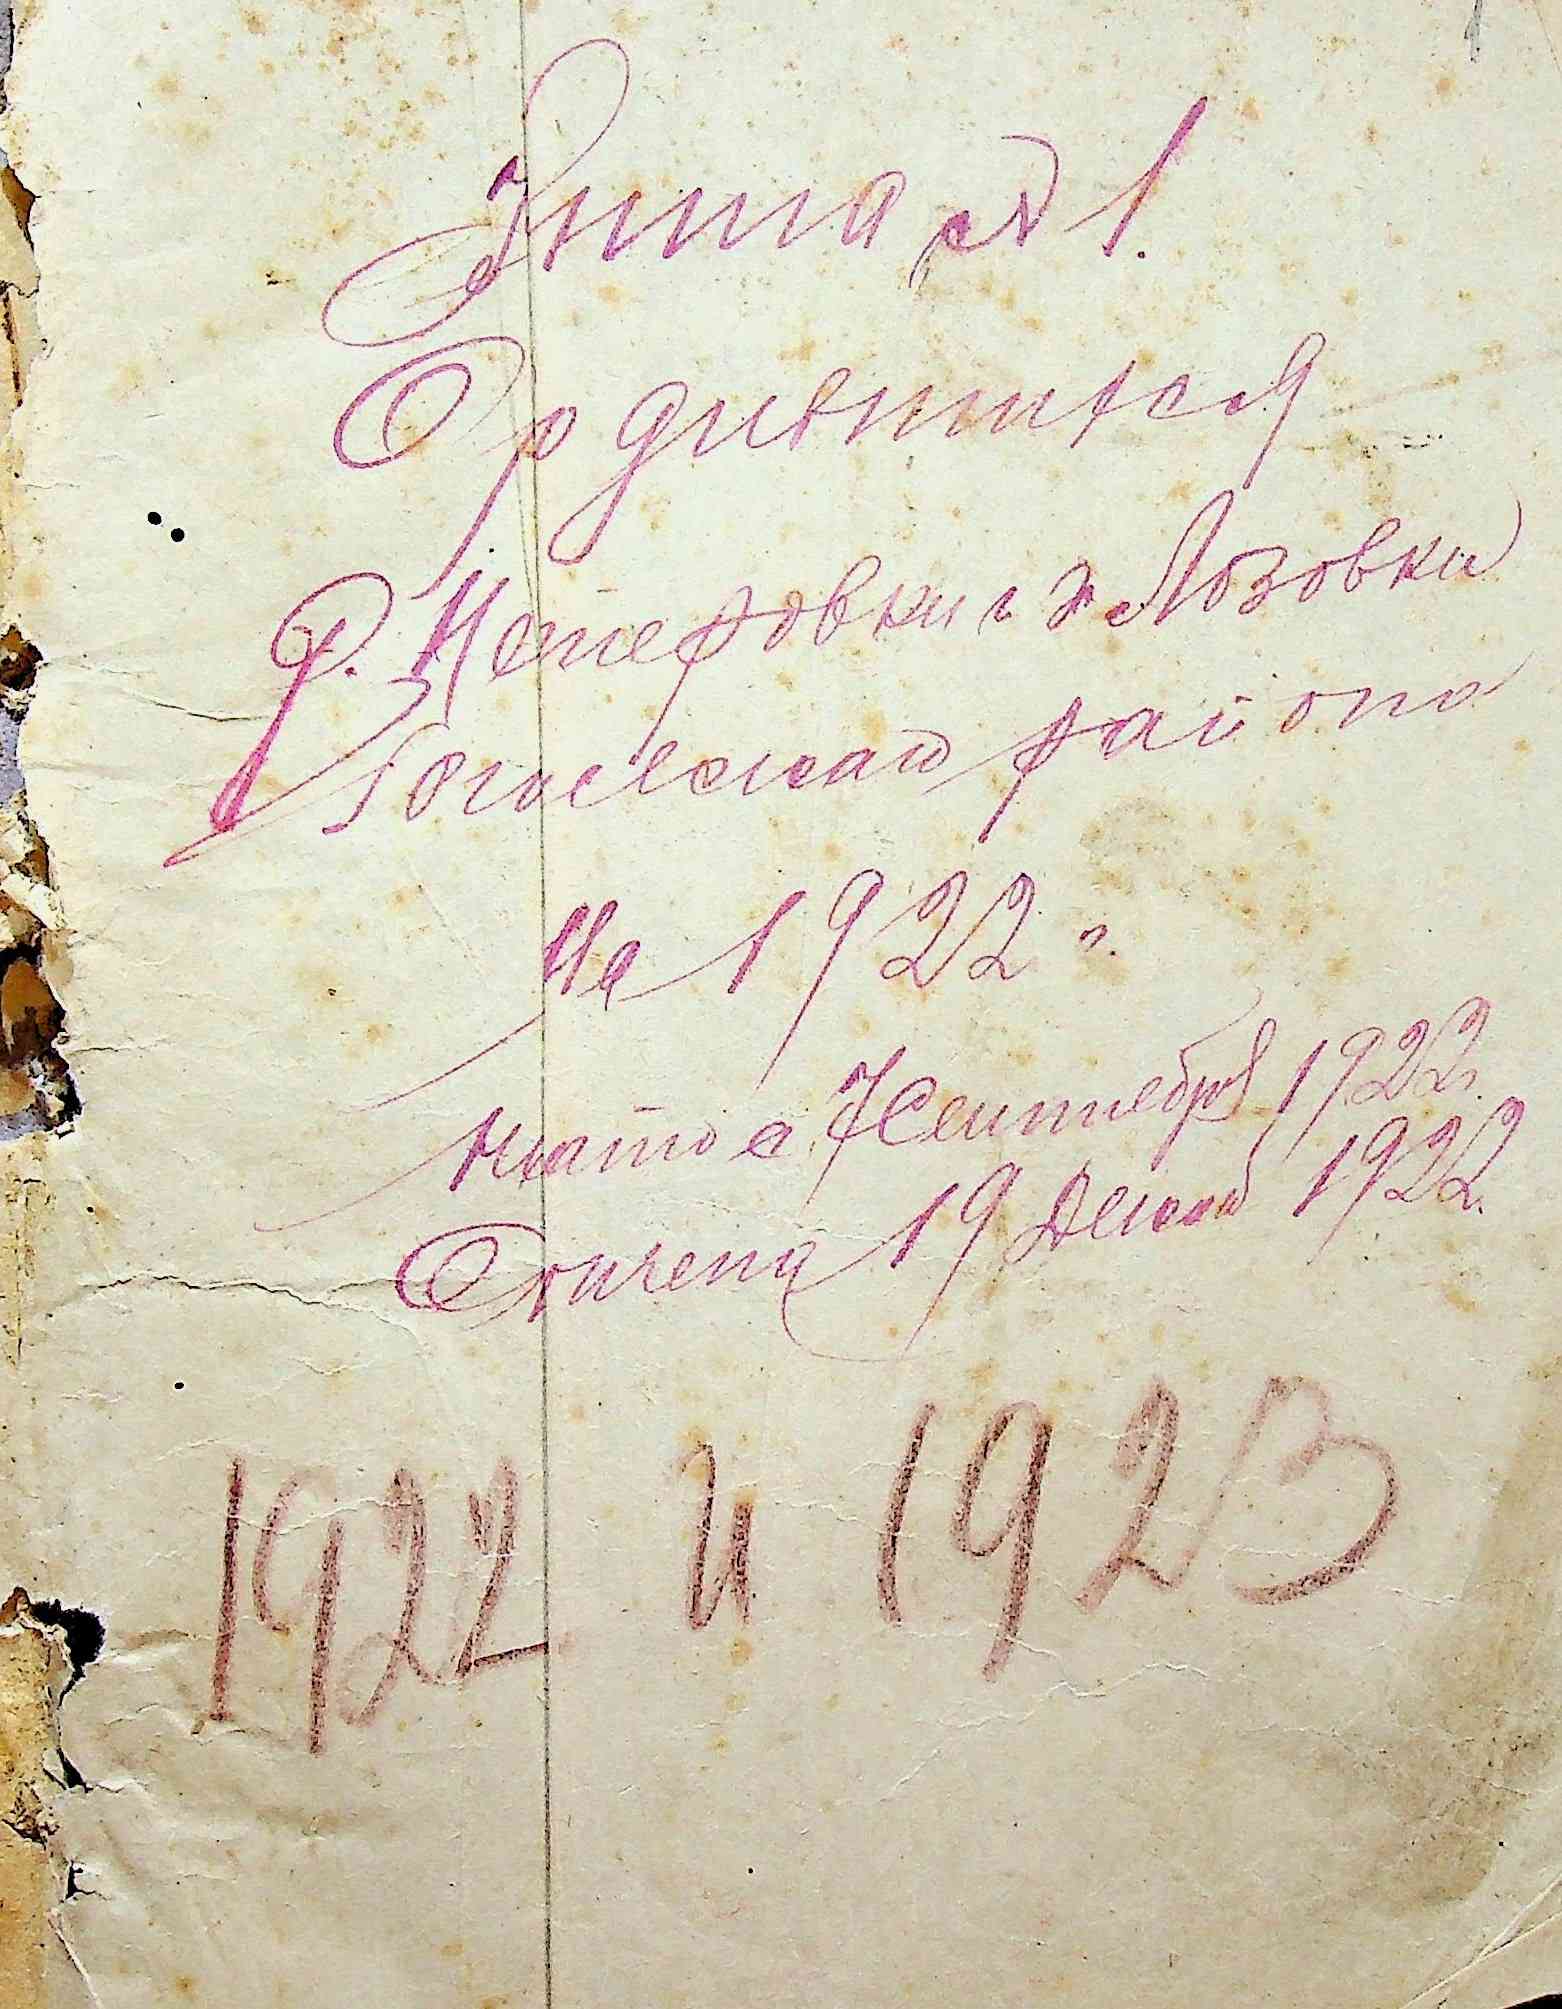 Книга № 1.
О родившихся
с. Нестеровки и х. Лозовки
района
На 1922 г.
Начато с 7 Сентября 1922 г.
Окончена 19 Декаб 1922 г.
1922 и 1923